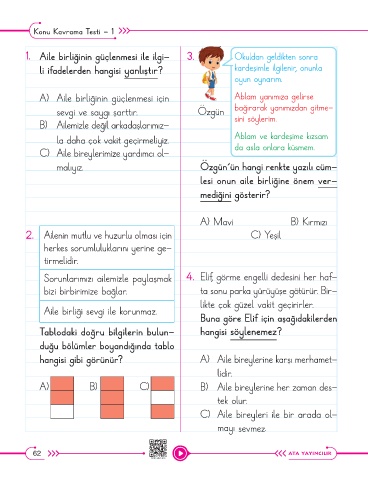 Konu Kavrama Testi - 1
1. Aile birliğinin güçlenmesi ile ilgi-
li ifadelerden hangisi yanlıştır?
A) Aile birliğinin güçlenmesi için
sevgi ve saygı şarttır.
B) Ailemizle değil arkadaşlarımız-
la daha çok vakit geçirmeliyiz.
C) Aile bireylerimize yardımcı ol-
malıyız.
2. Ailenin mutlu ve huzurlu olması için
herkes sorumluluklarını yerine ge-
tirmelidir.
Sorunlarımızı ailemizle paylaşmak
bizi birbirimize bağlar.
Aile birliği sevgi ile korunmaz.
Tablodaki doğru bilgilerin bulun-
duğu bölümler boyandığında tablo
hangisi gibi görünür?
A) B) C)
3. Okuldan geldikten sonra
kardeşimle ilgilenir, onunla
oyun oynarım.
Ablam yanımıza gelirse
bağırarak yanımızdan gitme-
sini söylerim.
Ablam ve kardeşime kızsam
da asla onlara küsmem.
Özgün
Özgün'ün hangi renkte yazılı cüm-
lesi onun aile birliğine önem ver-
mediğini gösterir?
A) Mavi B) Kırmızı
C) Yeşil
4. Elif, görme engelli dedesini her haf-
ta sonu parka yürüyüşe götürür. Bir-
likte çok güzel vakit geçirirler.
Buna göre Elif için aşağıdakilerden
hangisi söylenemez?
A) Aile bireylerine karşı merhamet-
lidir.
B) Aile bireylerine her zaman des-
tek olur.
C) Aile bireyleri ile bir arada ol-
mayı sevmez.
62
ATA YAYINCILIK